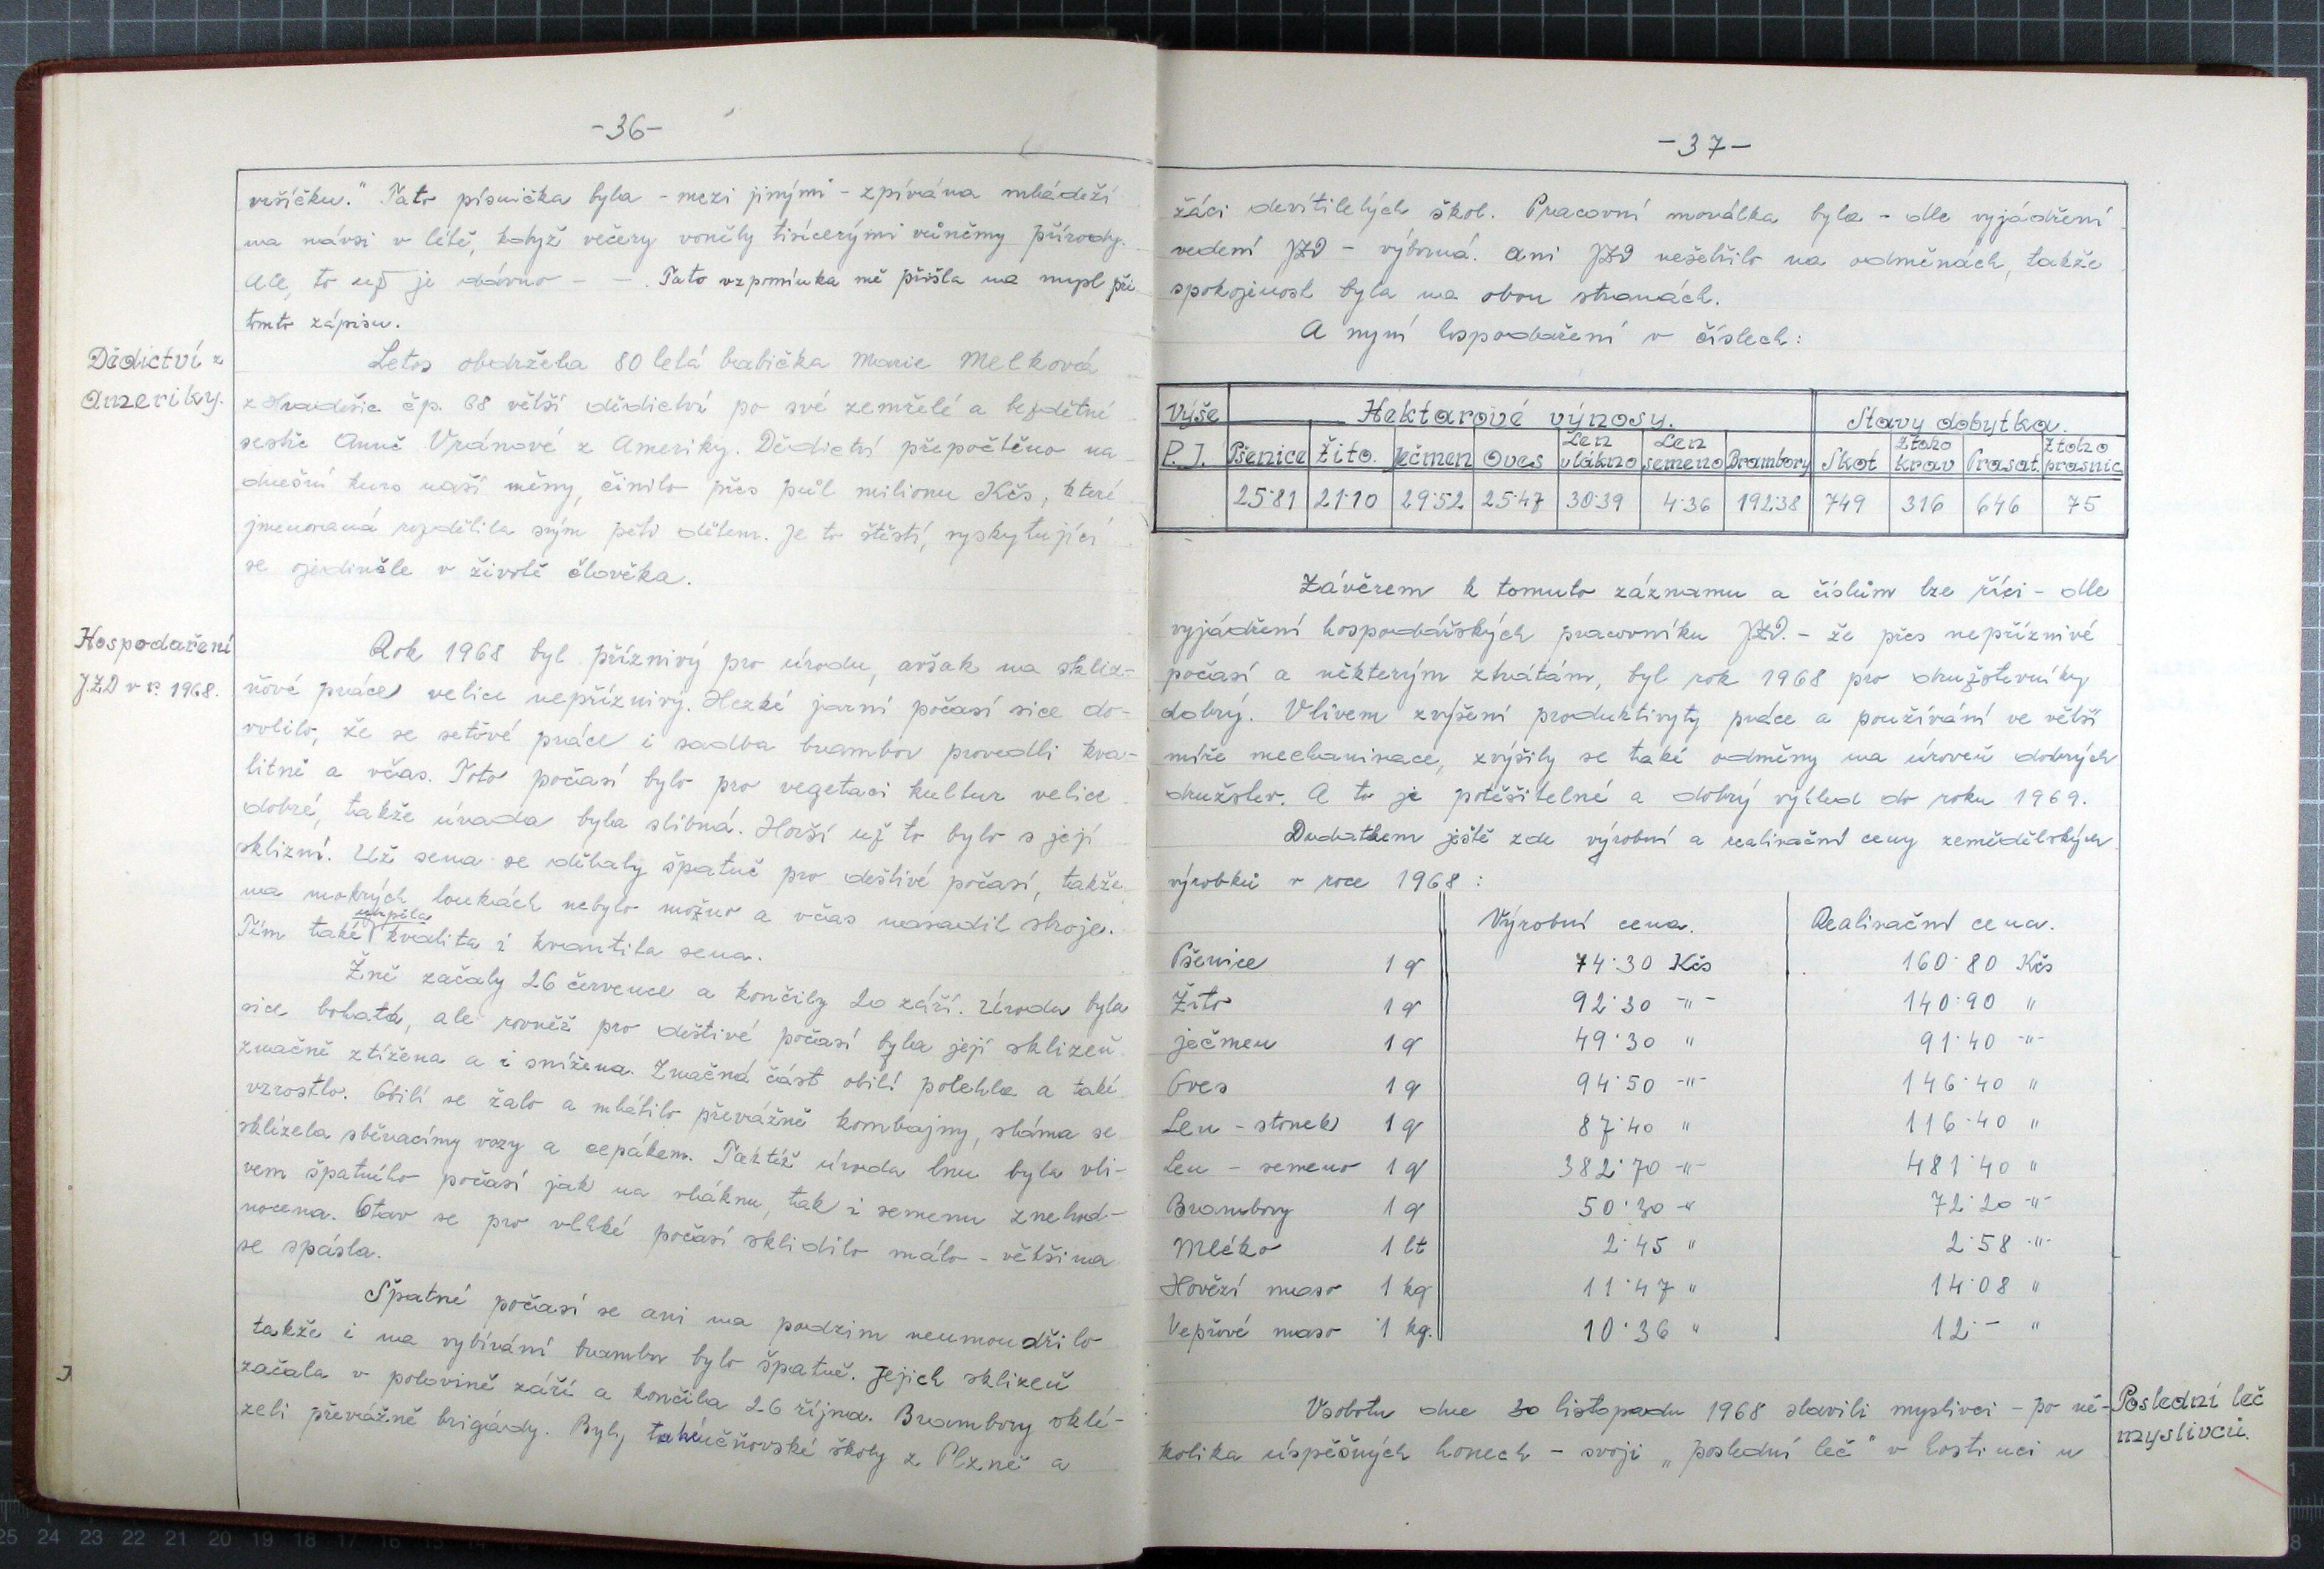 -36-
vršíčku." Tato písnička byla - mezi jinými - zpívána mládeží
na návsi v létě, když večery voněly tisícerými vůněmy přírody.
Ale, to už je dávno - - . Tato vzpomínka mě přišla na mysl při
tomto zápisu.
Dědictví z
Ameriky.
Letos obdržela 80 letá babička Marie Melková
z Hradešic čp. 68 větší dědictví po své zemřelé a bezdětné
sestře Anně Vránové z Ameriky. Dědictví přepočtěno na
dnešní kurs naší měny, činilo přes půl milionu Kčs, které
jmenovaná rozdělila svým pěti dětem. Je to štěstí, vyskytující
se ojediněle v životě člověka.
Hospodaření
J.Z.D v r. 1968.
Rok 1968 byl příznivý pro úrodu, avšak na skliz-
ňové práce velice nepříznivý. Hezké jarní počasí sice do-
volilo, že se seťové práce i sadba brambor provedli kva-
litně a včas. Toto počasí bylo pro vegetaci kultur velice
dobré, takže úroda byla slibná. Horší už to bylo s její
sklizní. Už sena se dělaly špatně pro deštivé počasí, takže
na mokrých loukách nebylo možno a včas nasadit stroje.
Tím také utrpěla kvalita i kvantita sena.
Žně začaly 26 července a končily 20 září. Úroda byla
sice bohatá, ale rovněž pro deštivé počasí byla její sklizeň
značně ztížena a i snížena. Značná část obilí polehla a také
vzrostlo. Obilí se žalo a mlátilo převážně kombajny, sláma se
sklízela sběracímy vozy a cepákem. Taktéž úroda lnu byla vli-
vem špatného počasí jak na vláknu, tak i semenu znehod-
nocena. Otav se pro vlhké počasí sklidilo málo - většina
se spásla.
Špatné počasí se ani na podzim neumoudřilo
takže i na vybírání brambor bylo špatně. Jejich sklizeň
začala v polovině září a končila 26 října. Brambory sklí-
zeli převážně brigády. Byly také učňovské školy z Plzně a
-37-
žáci devítiletých škol. Pracovní morálka byla - dle vyjádření
vedení JZD - výborná. Ani JZD nešetřilo na odměnách, takže
spokojenost byla na obou stranách.
A nyní hospodaření v číslech:
Výše Hektarové výnosy. Stavy dobytka.
P.J. Pšenice Žito. Ječmen Oves Len vlákno Len semeno Brambory Skot Z toho krav Prasat. Z toho prasnic
25·81 21·10 29·52 25·47 30·39 4·36 192·38 749 316 646 75
Závěrem k tomuto záznamu a číslům lze říci - dle
vyjádření hospodářských pracovníku JZD. - že přes nepříznivé
počasí a některým ztrátám, byl rok 1968 pro družstevníky
dobrý. Vlivem zvýšení produktivyty práce a používání ve větší
míře mechanisace, zvýšily se také odměny na úroveň dobrých
družstev. A to je potěšitelné a dobrý výhled do roku 1969.
Dodatkem ještě zde výrobní a realisační ceny zemědělských
výrobků v roce 1968 :
Výrobní cena. Realisační cena.
Pšenice 1 q 74·30 Kčs 160·80 Kčs
Žito 1 q 92·30 -"- 140·90 "
Ječmen 1 q 49·30 " 91·40 -"-
Oves 1 q 94·50 -"- 146·40 "
Len - stonek 1 q 87·40 " 116·40 "
Len - semeno 1 q 382·70 -"- 481·40 "
Brambory 1 q 50·30 -" 72·20 -"-
Mléko 1 lt 2·45 " 2·58 -"-
Hovězí maso 1 kg 11·47 " 14·08 "
Vepřové maso 1 kg. 10·36 " 12·- "
V sobotu dne 30 listopadu 1968 slavili myslivci - po ně-
kolika úspěšných honech - svoji „poslední leč" v hostinci u
Poslední leč
myslivců.
25 24 23 22 21 20 19 18 17 16 15 14